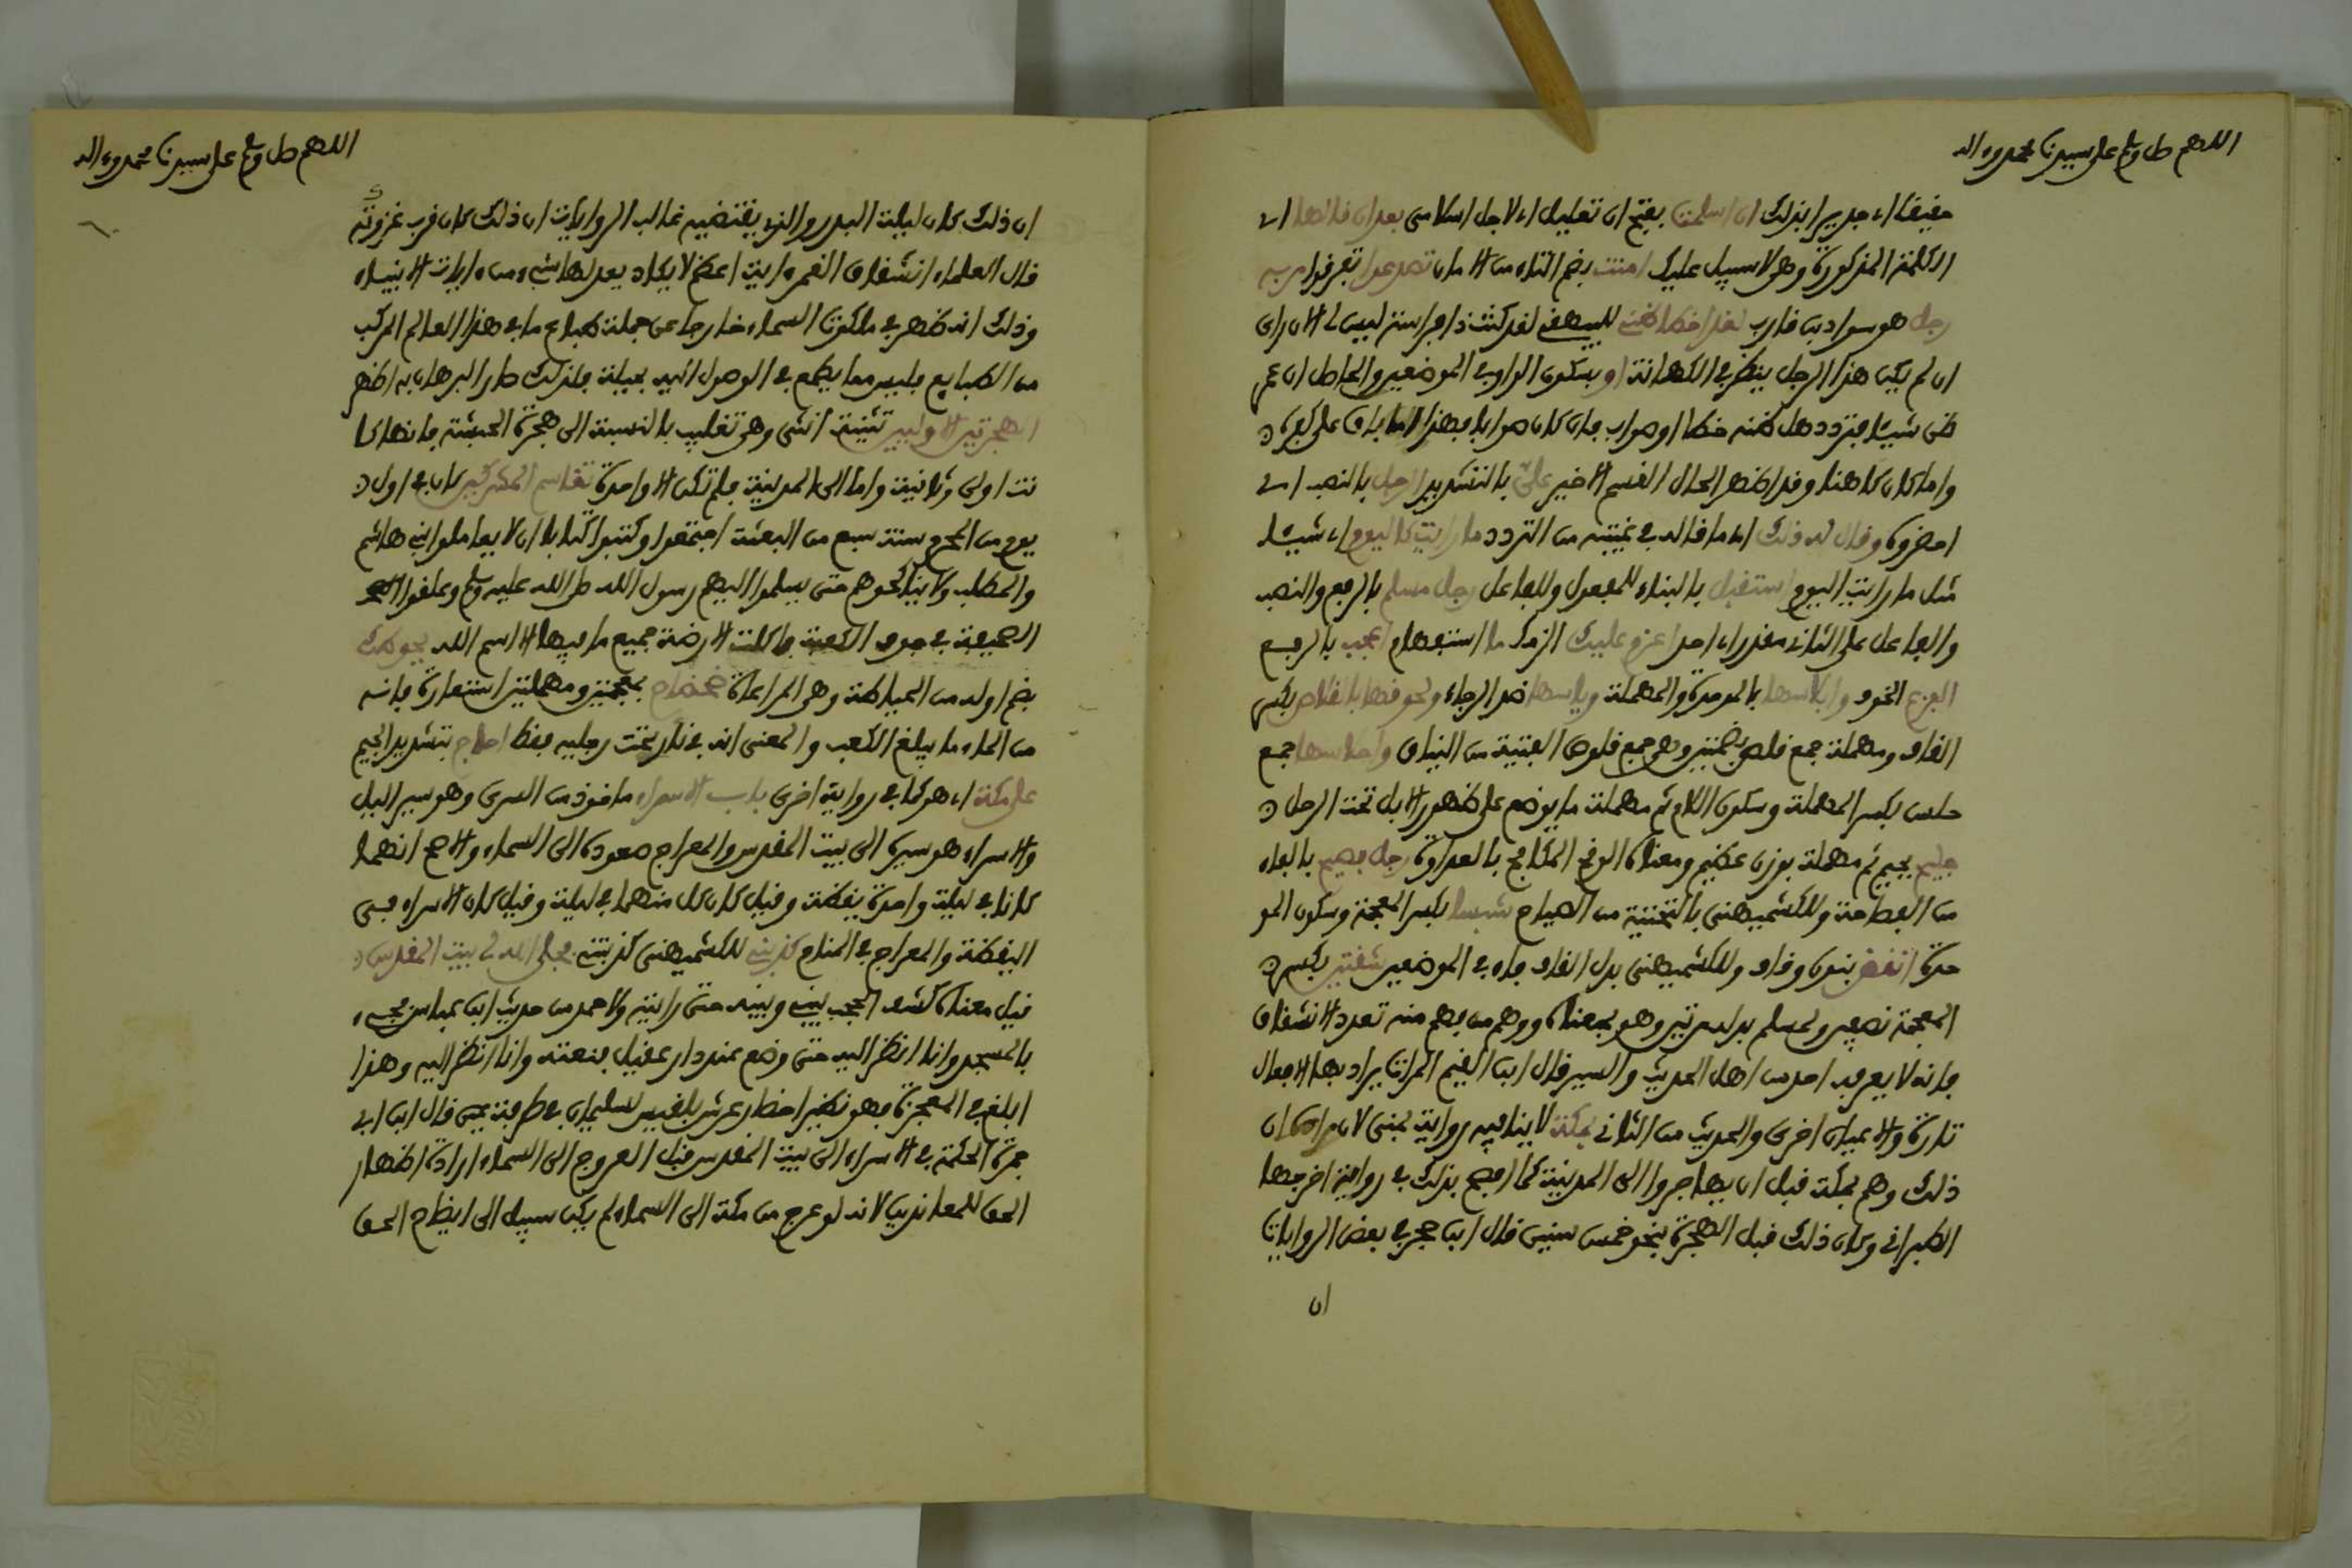 اللهم صل وسلم على سيدنا محمد وءاله
حقيقا اي جديرا بذلك ان اسلمت بفتح ان تعليل اي لاجل اسلامي بعد ان قالها اي
الكلمة المذكورة وهي لا سبيل عليك امنت بضم التاء من الامان تصدعوا تفرقوا مر به
رجل هو سواد بن قارب لقد اخطا ظني للبيهقي لقد كنت ذا فراسة ليس لي الان راي
ان لم يكن هذا الرجل ينظر في الكهانة او بسكون الواو في الموضعين والحاصل ان عمر
ظن شيئا فتردد هل ظنه خطا او صواب فان كان صوابا فهذا اما باق على كفره
واما كان كاهنا وقد اظهر الحال القسم الاخير علي بالتشديد الرجل بالنصب اي
احضروه وقال له ذلك اي ما قاله في غيبته من التردد ما رايت كاليوم اي شيئا
مثل ما رايت اليوم استقبل بالبناء للمفعول وللفاعل رجل مسلم بالرفع والنصب
والفاعل على الثاني مقدر اي احد اعزم عليك الزمك ما استفهام اعجب بالرفع
الفزع الخوف وابلاسها بالموحدة والمهملة وياسها ضد الرجاء ولحوقها بالقلاص بكسر
القاف ومهملة جمع قلص بضمتين وهو جمع قلوص الفتية من النياق واحلاسها جمع
حلس بكسر المهملة وسكون اللام ثم مهملة ما يوضع على ظهور الابل تحت الرحل
جليح بجيم ثم مهملة بوزن عظيم ومعناه الوقح المكافح بالعداوة رجل فصيح بالفاء
من الفصاحة وللكشميهني بالتحتية من الصياح نشبنا بكسر المعجمة وسكون المو
حدة انقض بنون وقاف وللكشميهني بدل القاف فاء في الموضعين شقتين بكسر
المعجمة نصفين ولمسلم بدله مرتين وهو بمعناه ووهم من فهم منه تعدد الانشقاق
فانه لا يعرفه احد من اهل الحديث والسير قال ابن القيم المرات يراد بها الافعال
تارة والاعيان اخرى والحديث من الثاني بمكة لا ينافيه رواية بمنى لان مراده ان
ذلك وهم بمكة قبل ان يهاجروا الى المدينة كما افصح بذلك في رواية اخرجها
الطبراني وكان ذلك قبل الهجرة بنحو خمس سنين قال ابن حجر في بعض الروايات
ان
اللهم صل وسلم على سيدنا محمد وءاله
ان ذلك كان ليلة البدر والذي يقتضيه غالب الروايات ان ذلك كان قرب غروبه
قال العلماء انشقاق القمر ءاية اعظم لا يكاد يعدلها شيء من ءايات الانبياء
وذلك انه ظهر في ملكوت السماء خارجا عن جملة طباع ما في هذا العالم المركب
من الطبايع فليس مما يطمع في الوصول اليه بحيلة فلذلك صار البرهان به اظهر
الهجرتين الاوليين تثنية انثى وهو تغليب بالنسبة الى هجرة الحبشة فانها كا
نت اولى وثانية واما الى المدينة فلم تكن الا واحدة تقاسم المشركين كان في اول
يوم من المحرم سنة سبع من البعثة اجتمعوا وكتبوا كتابا ان لا يعاملوا بني هاشم
والمطلب ولا يناكحوهم حتى يسلموا اليهم رسول الله صلى الله عليه وسلم وعلقوا
الصحيفة في جوف الكعبة فاكلت الارضة جميع ما فيها الا اسم الله يحوطك
بضم اوله من الحياطة وهي المراعاة ضحضاح بمعجمتين ومهملتين استعارة فانه
من الماء ما يبلغ الكعب والمعنى انه في نار تحت رجليه فقط احاج بتشديد الجيم
على مكة اي هو كما في رواية اخرى باب الاسراء ماخوذ من السرى وهو سير الليل
والاسراء هو سيره الى بيت المقدس والمعراج صعوده الى السماء والاصح انهما
كانا في ليلة واحدة يقظة وقيل كان كل منهما في ليلة وقيل كان الاسراء في
اليقظة والمعراج في المنام كذبني للكشميهني كذبتني فجلى الله لي بيت المقدس
قيل معناه كشف الحجب بيني وبينه حتى رايته ولاحمد من حديث ابن عباس فجيء
بالمسجد وانا انظر اليه حتى وضع عند دار عقيل فنعته وانا انظر اليه وهذا
ابلغ في المعجزة فهو نظير احضار عرش بلقيس لسليمان في طرفة عين قال ابن ابي
جمرة الحكمة في الاسراء الى بيت المقدس قبل العروج الى السماء ارادة اظهار
الحق للمعاندين لانه لو عرج من مكة الى السماء لم يكن سبيل الى ايضاح الحق